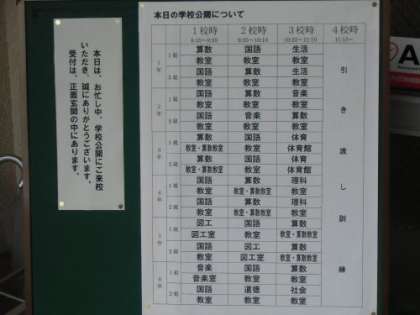 本日の学校公開について
1校時 2校時 3校時 4校時
1年 1組 算数 国語 生活
教室 教室 教室
2組 国語 算数 生活
教室 教室 教室
2年 1組 国語 算数 音楽
教室 教室 教室
2組 国語 音楽 算数
教室 教室 教室
3年 1組 算数 国語 体育
教室・算数教室 教室 体育館
2組 算数 国語 体育
教室・算数教室 教室 体育館
4年 1組 国語 算数 理科
教室 教室・算数教室 教室
2組 国語 算数 理科
教室 教室・算数教室 教室
5年 1組 図工 国語 算数
図工室 教室 教室・算数教室
2組 国語 図工 算数
教室 図工室 教室・算数教室
6年 1組 音楽 国語 算数
音楽室 教室 教室
2組 国語 道徳 社会
教室 教室 教室
引き渡し訓練
本日は、お忙し中、学校公開にご来校
いただき、誠にありがとうございます。
受付は、正面玄関の中にあります。
A